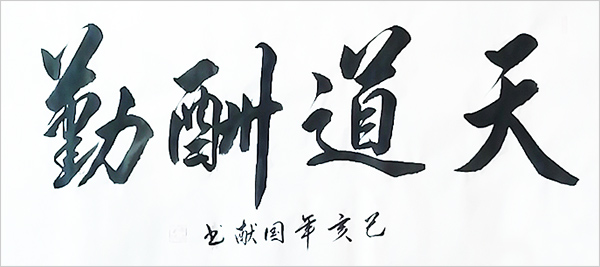 天道酬勤
己亥年国献书